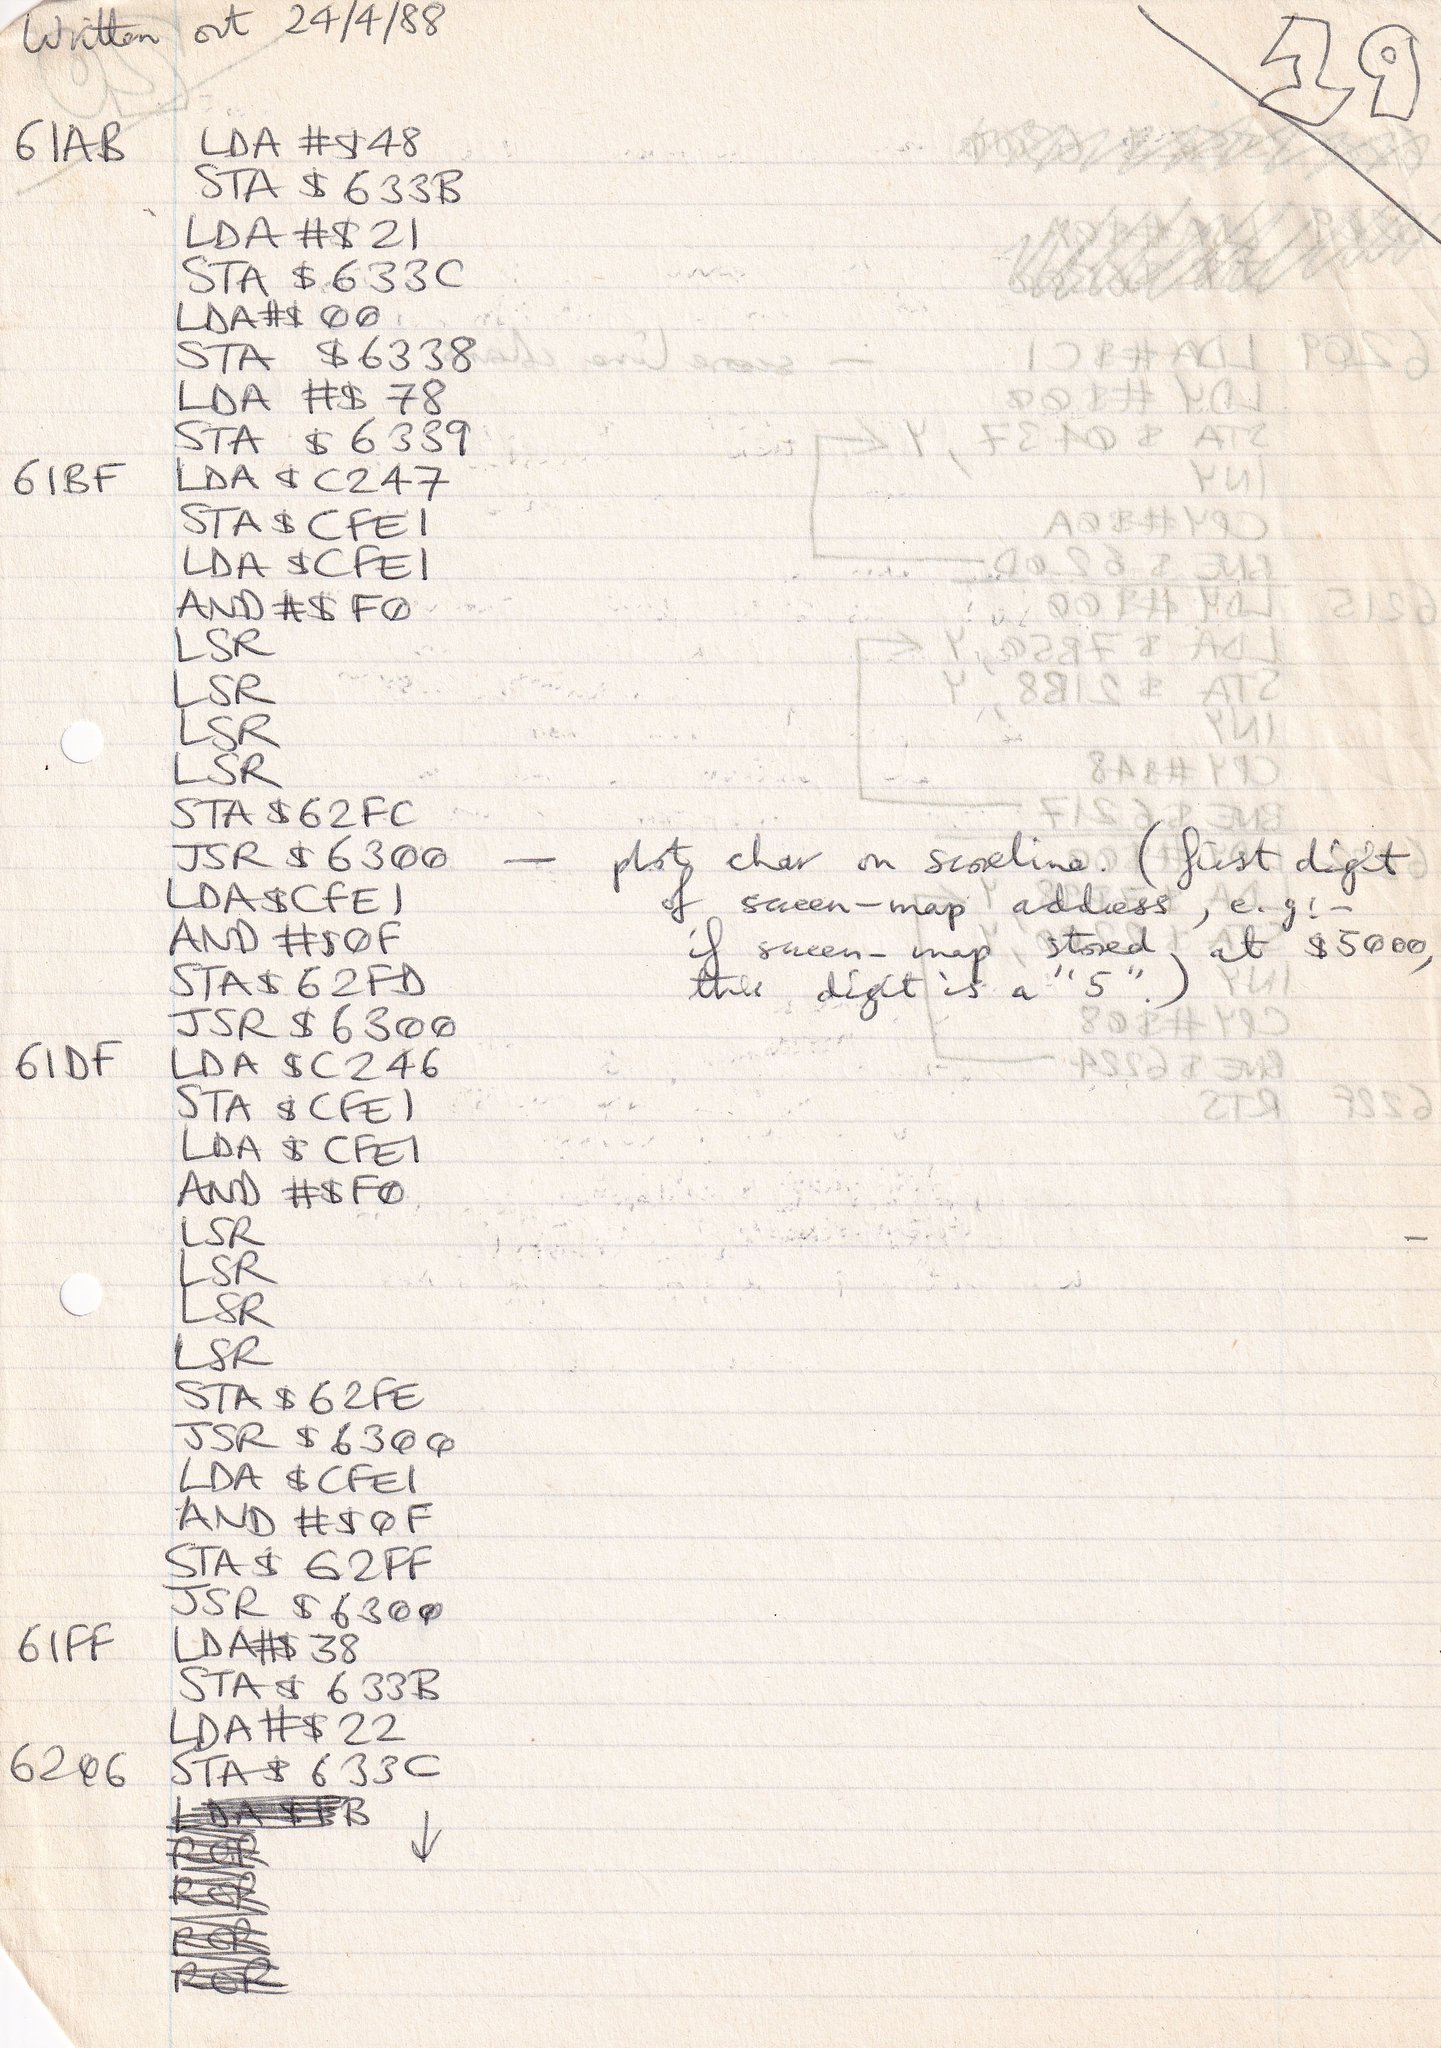 Written out 24/4/88
19
61AB LDA #$48
STA $633B
LDA #$21
STA $633C
LDA#$00
STA $6338
LDA #$78
STA $6339
61BF LDA $C247
STA $CFE1
LDA $CFE1
AND #$F0
LSR
LSR
LSR
LSR
STA $62FC
JSR $6300 — plots char on scoreline. (first digit
LDA$CFE1 of screen-map address, e.g:-
AND #$0F if screen-map stored at $5000,
STA$62FD this digit is a "5".)
JSR $6300
61DF LDA $C246
STA $CFE1
LDA $CFE1
AND #$F0
LSR
LSR
LSR
LSR
STA $62FE
JSR $6300
LDA $CFE1
AND #$0F
STA$ 62FF
JSR $6300
61FF LDA#$38
STA$ 633B
LDA#$22
6206 STA$ 633C
ROR
ROR
ROR
ROR